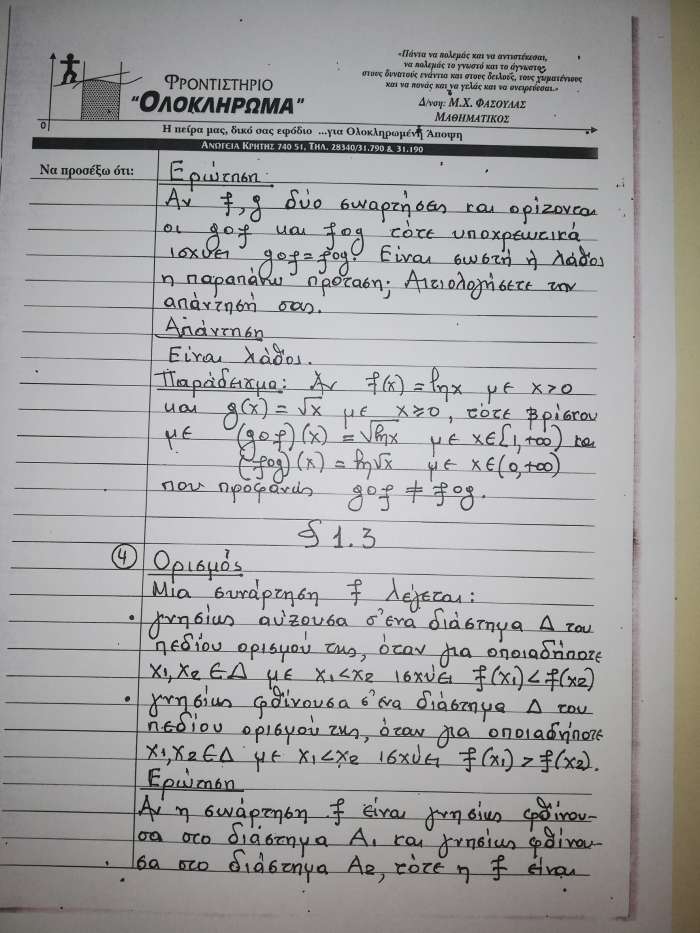 «Πάντα να πολεμάς και να αντιστέκεσαι,
να πολεμάς το γνωστό και το άγνωστο,
στους δυνατούς ενάντια και στους δειλούς, τους χωματένιους
και να πονάς και να γελάς και να ονειρεύεσαι.»
ΦΡΟΝΤΙΣΤΗΡΙΟ
"ΟΛΟΚΛΗΡΩΜΑ"
Δ/νση: Μ.Χ. ΦΑΣΟΥΛΑΣ
ΜΑΘΗΜΑΤΙΚΟΣ
0
Η πείρα μας, δικό σας εφόδιο ...για Ολοκληρωμένη Άποψη
ΑΝΩΓΕΙΑ ΚΡΗΤΗΣ 740 51, ΤΗΛ. 28340/31.790 & 31.190
Να προσέξω ότι:
Ερώτηση:
Αν f, g δύο συναρτήσεις και ορίζονται
οι gof και fog τότε υποχρεωτικά
ισχύει gof = fog. Είναι σωστή ή λάθος
η παραπάνω πρόταση; Αιτιολογήσετε την
απάντησή σας.
Απάντηση
Είναι λάθος.
Παράδειγμα: Αν f(x) = lnx με x>0
και g(x) = √x με x≥0, τότε βρίσκου
με (gof)(x) = √lnx με x∈[1,+∞) και
(fog)(x) = ln√x με x∈(0,+∞)
που προφανώς gof ≠ fog.
§ 1.3
④ Ορισμός
Μια συνάρτηση f λέγεται:
• γνησίως αύξουσα σ'ένα διάστημα Δ του
πεδίου ορισμού της, όταν για οποιαδήποτε
x₁,x₂∈Δ με x₁<x₂ ισχύει f(x₁)<f(x₂)
• γνησίως φθίνουσα σ'ένα διάστημα Δ του
πεδίου ορισμού της, όταν για οποιαδήποτε
x₁,x₂∈Δ με x₁<x₂ ισχύει f(x₁)>f(x₂).
Ερώτηση
Αν η συνάρτηση f είναι γνησίως φθίνου-
σα στο διάστημα Α₁ και γνησίως φθίνου-
σα στο διάστημα Α₂, τότε η f είναι